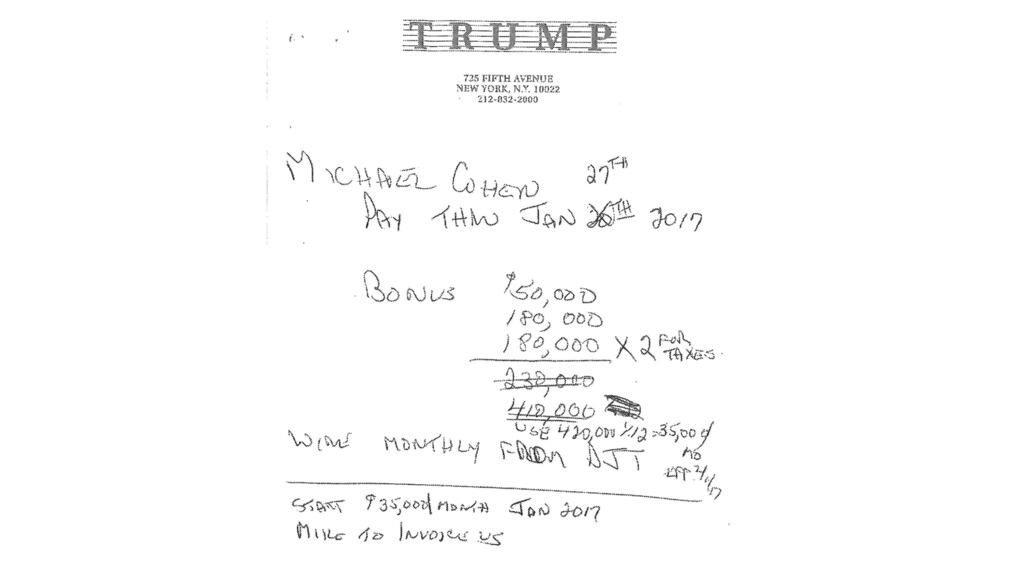 TRUMP
725 FIFTH AVENUE
NEW YORK, N.Y. 10022
212-832-2000
MICHAEL COHEN 27TH
PAY THRU JAN TH 2017
BONUS $50,000
180,000
180,000 X 2 FOR TAXES.
230,000
410,000
USE 420,000 ÷ 12 = 35,000/
MO
WIRE MONTHLY FROM DJT
START $35,000/MONTH JAN 2017
MIKE TO INVOICE US